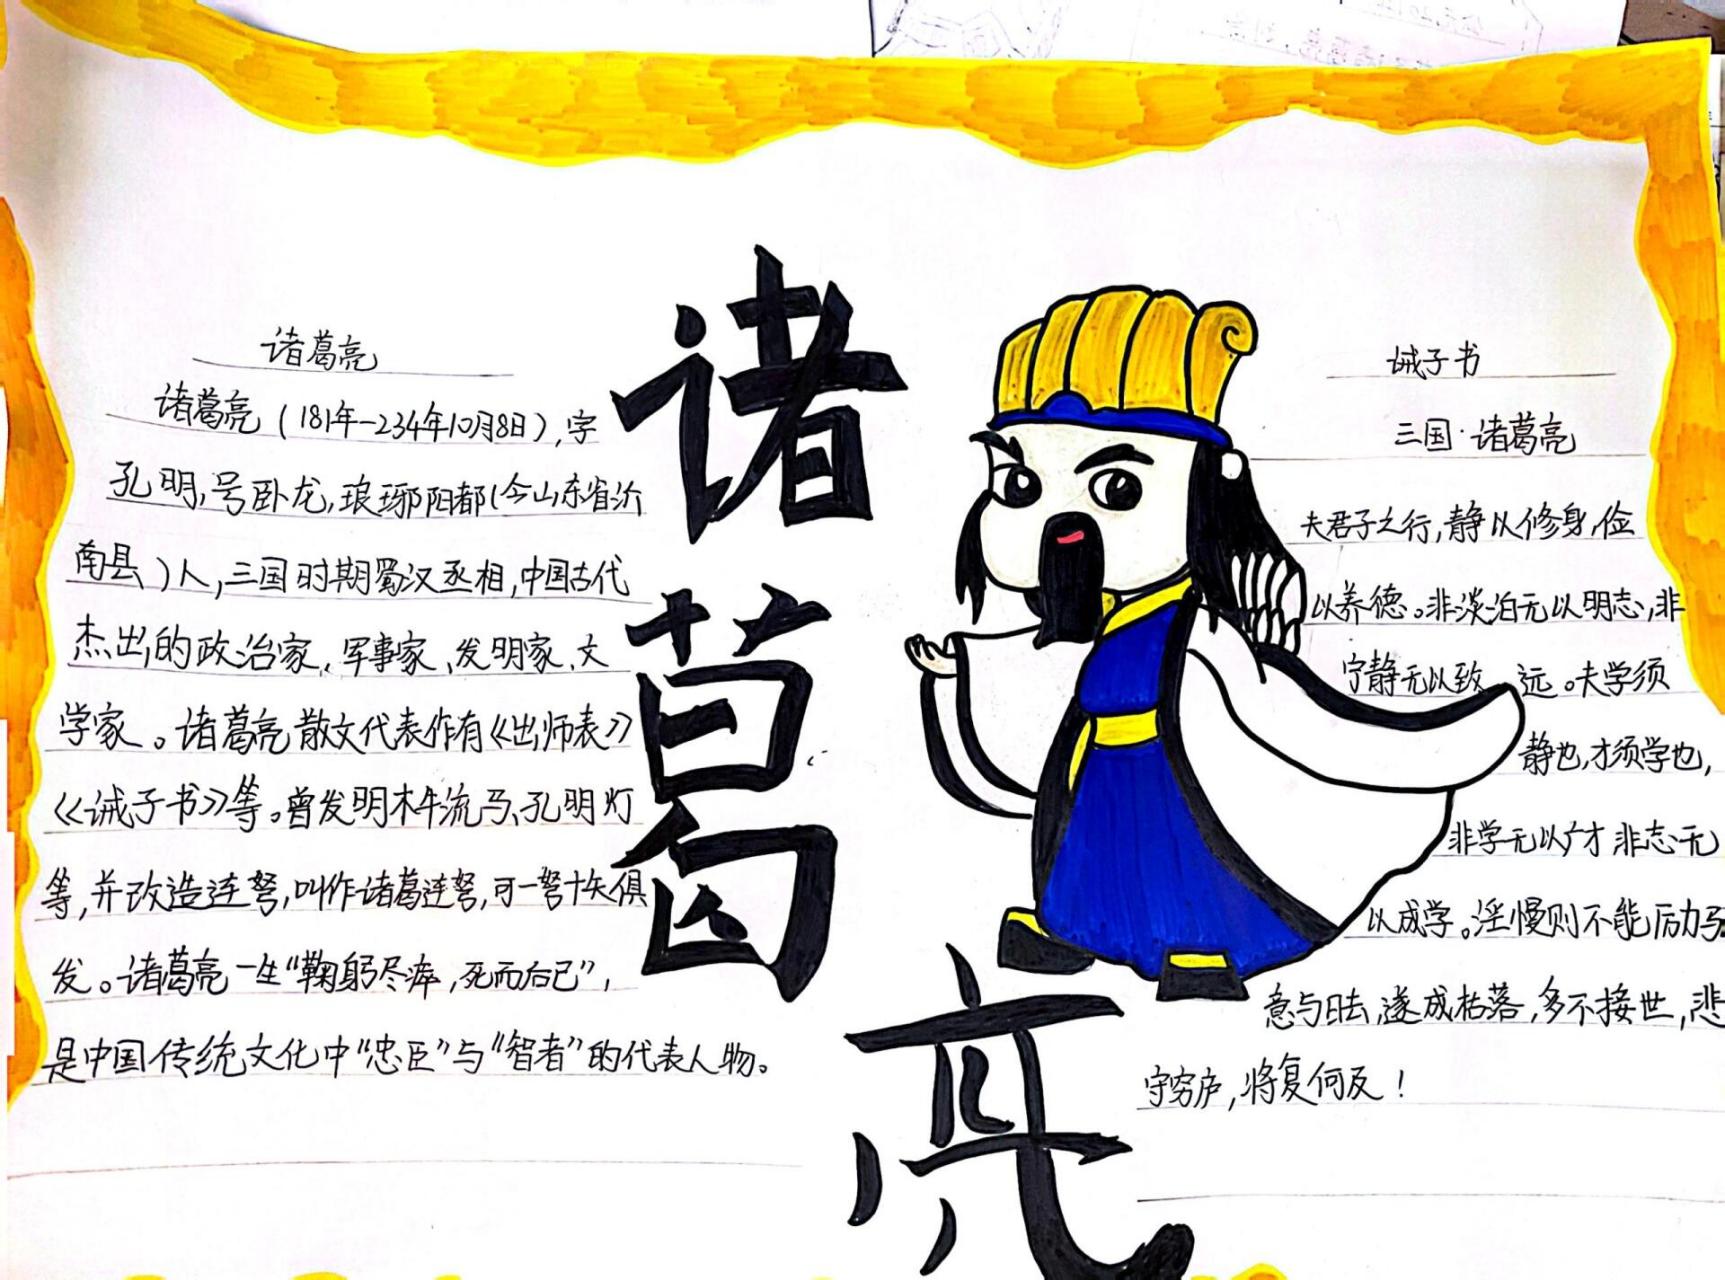 诸葛亮
诸葛亮（181年-234年10月8日）,字
孔明,号卧龙,琅琊阳都(今山东省沂
南县）人,三国时期蜀汉丞相,中国古代
杰出的政治家、军事家、发明家、文
学家。诸葛亮散文代表作有《出师表》
《诫子书》等。曾发明木牛流马、孔明灯
等,并改造连弩,叫作诸葛连弩,可一弩十矢俱
发。诸葛亮一生“鞠躬尽瘁,死而后已”,
是中国传统文化中“忠臣”与“智者”的代表人物。
诸
葛
亮
诫子书
三国·诸葛亮
夫君子之行,静以修身,俭
以养德。非淡泊无以明志,非
宁静无以致远。夫学须
静也,才须学也,
非学无以广才 非志无
以成学。淫慢则不能励
意与日去,遂成枯落,多不接世,悲
守穷庐,将复何及！